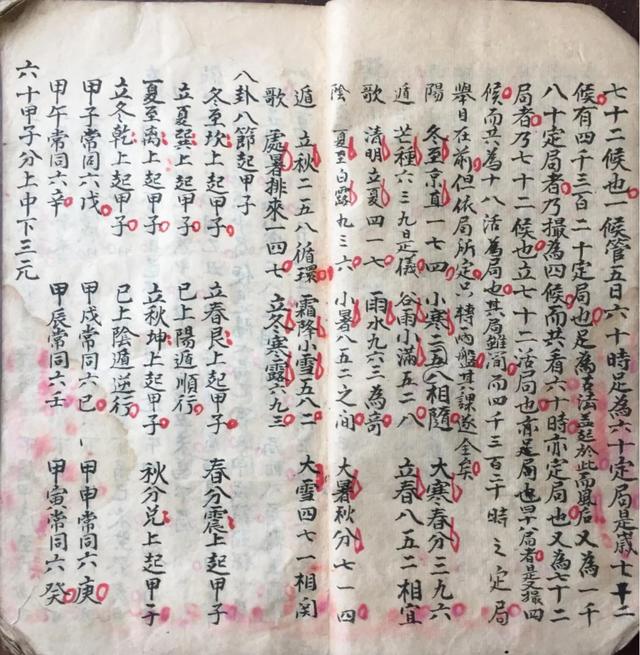 七十二候也一候管五日六十時定為六十定局是歲七十二
候有四千三百二十定局也定為古法蓋起於此而風后又為一千
八十定局者乃撮為四候而共看六十時亦定局也又為七十二
局者乃七十二候也立七十二活局也亦是局也四十八局者是又撮四
候而共為十八活為局也其局雖簡而四千三百二十時之定局
舉目在前但依局所定只轉內盤其課遂全矣
陽 冬至京直一七四 小寒二五八相隨 大寒春分三九六
遁 芒種六三九是儀 谷雨小滿五二八 立春八五二相宜
歌 清明立夏四一七 雨水九六三為奇
陰 夏至白露九三六 小暑八五二之间 大暑秋分七一四
遁 立秋二五八循環 霜降小雪五八二 大雪四七一相関
歌 處暑排來一四七 立冬寒露六九三
八卦八節起甲子
冬至坎上起甲子 立春艮上起甲子 春分震上起甲子
立夏巽上起甲子 已上陽遁順行
夏至离上起甲子 立秋坤上起甲子 秋分兌上起甲子
立冬乾上起甲子 已上陰遁逆行
甲子常同六戊 甲戌常同六己 甲申常同六庚
甲午常同六辛 甲辰常同六壬 甲寅常同六癸
六十甲子分上中下三元